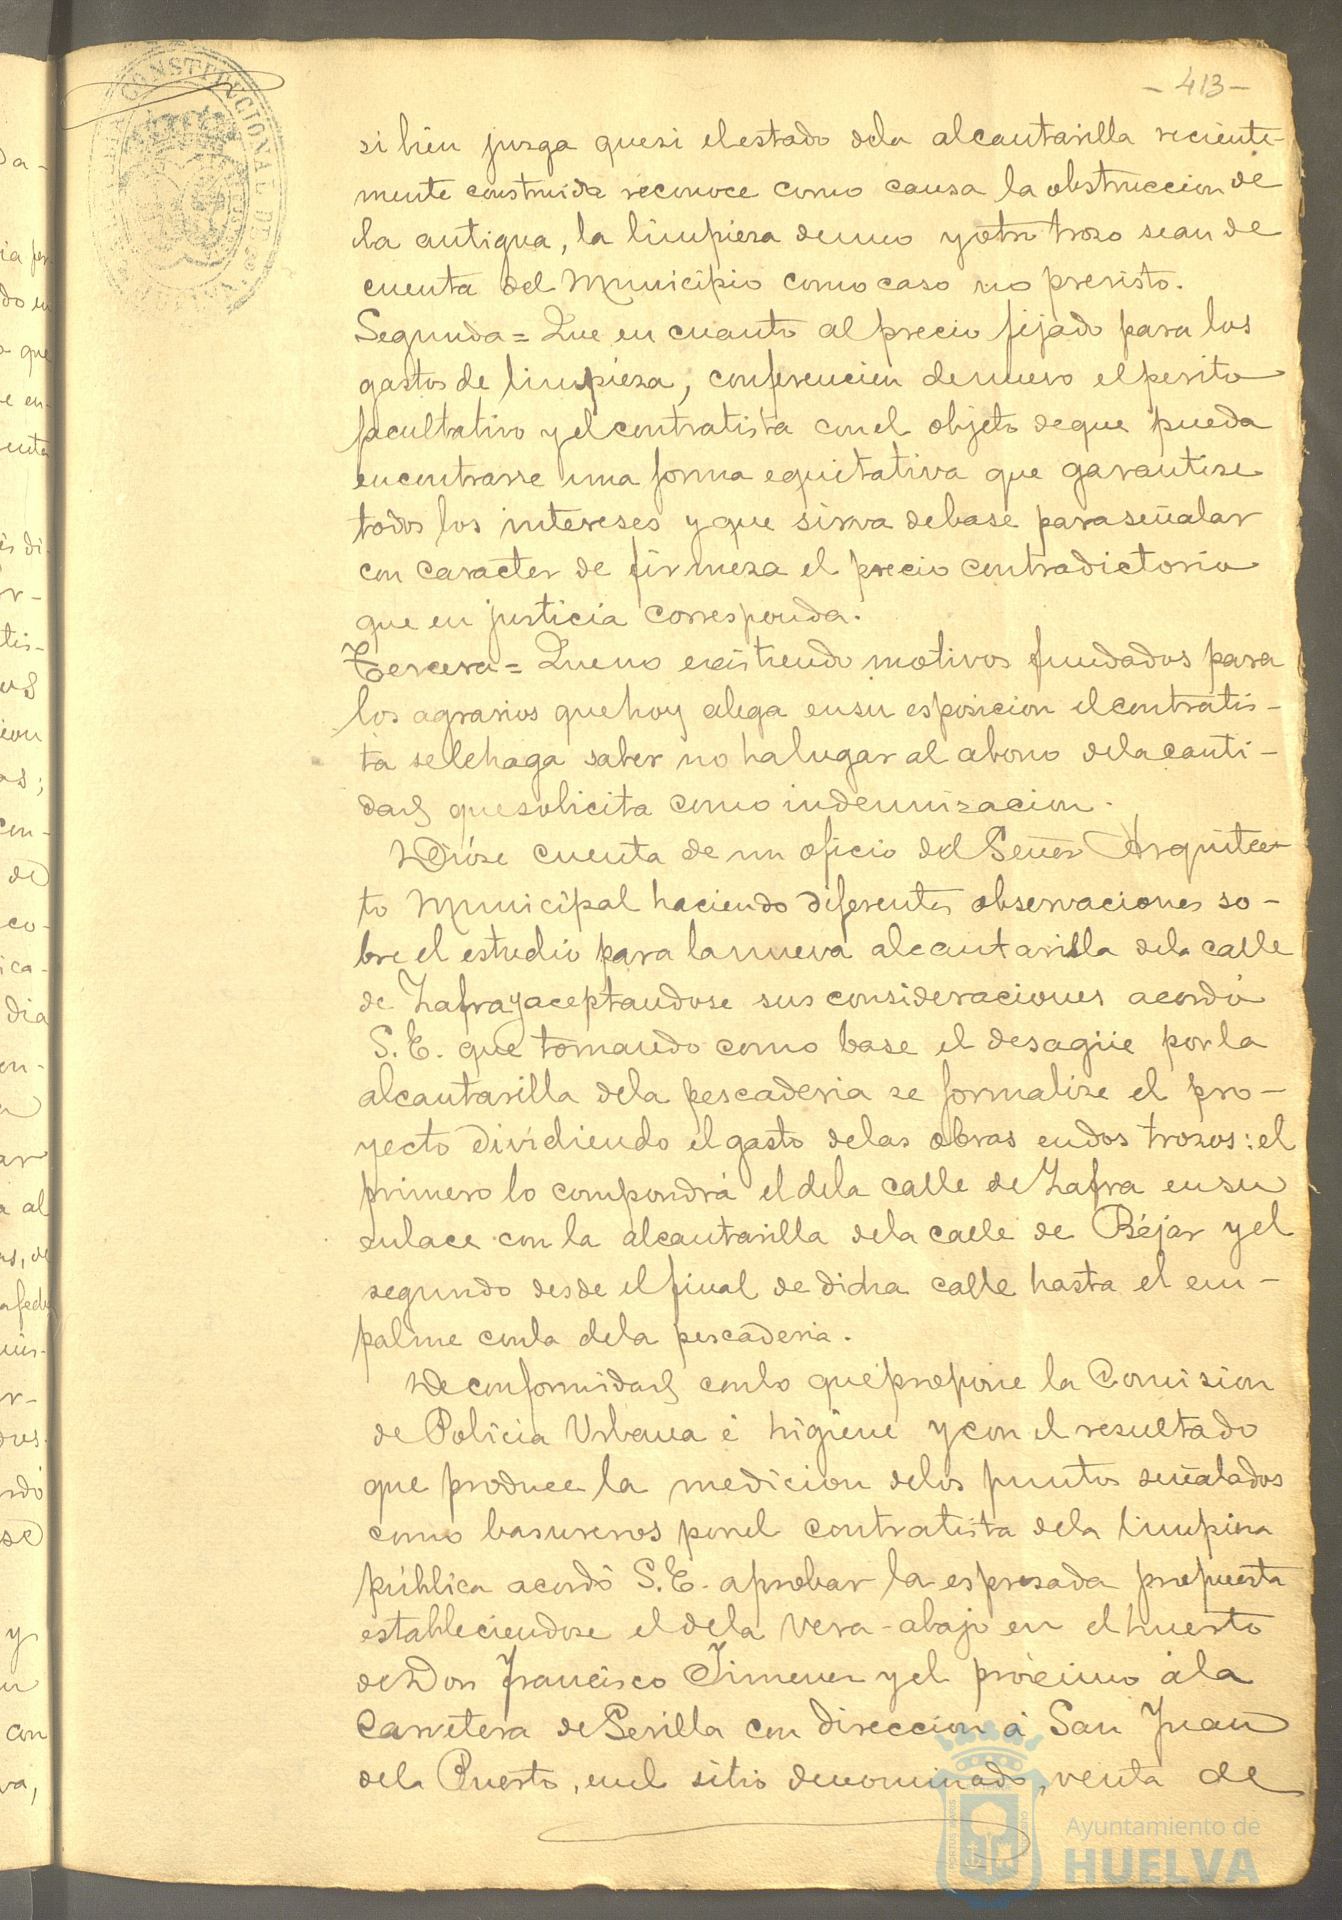 - 413 -
si bien juzga que si el estado de la alcantarilla reciente-
mente construida reconoce como causa la obstruccion de
la antigua, la limpieza de uno y otro trozo sean de
cuenta del Municipio como caso no previsto.
Segunda = Que en cuanto al precio fijado para los
gastos de limpieza, conferencien de nuevo el perito
facultativo y el contratista con el objeto de que pueda
encontrarse una forma equitativa que garantise
todos los intereses y que sirva de base para señalar
con caracter de firmeza el precio contradictorio
que en justicia corresponda.
Tercera = Que no existiendo motivos fundados para
los agravios que hoy alega en su esposicion el contratis-
ta se le haga saber no ha lugar al abono de la canti-
dad que solicita como indemnizacion.
Dióse cuenta de un oficio del Señor Arquitec-
to Municipal haciendo diferentes observaciones so-
bre el estudio para la nueva alcantarilla de la calle
de Zafra y aceptandose sus consideraciones acordó
S.E. que tomando como base el desagüe por la
alcantarilla de la pescaderia se formalize el pro-
yecto dividiendo el gasto de las obras en dos trozos: el
primero lo compondrá el de la calle de Zafra en su
enlace con la alcantarilla de la calle de Béjar y el
segundo desde el final de dicha calle hasta el em-
palme con la de la pescaderia.
De conformidad con lo que propone la Comision
de Policia Urbana é higiene y con el resultado
que produce la medicion de los puntos señalados
como basureros por el contratista de la limpieza
pública acordó S.E. aprobar la espresada propuesta
estableciendose el de la Vera-abajo en el huerto
de Don Francisco Jimenez y el próximo á la
Carretera de Sevilla con direccion á San Juan
de la Puerto, en el sitio denominado, venta de
CONSTITUCIONAL DE
Ayuntamiento de
HUELVA